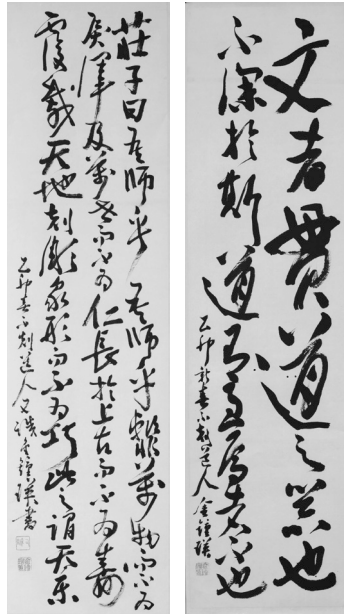 文者貫道之器也
不深於斯道有至焉者不也
乙卯新春不刻道人金鐘瑛
莊子曰吾師乎吾師乎齏萬物而不為
戾澤及萬世而不為仁長於上古而不為壽
覆載天地刻彫衆形而不為巧此之謂天樂
乙卯春不刻道人金鐘瑛書